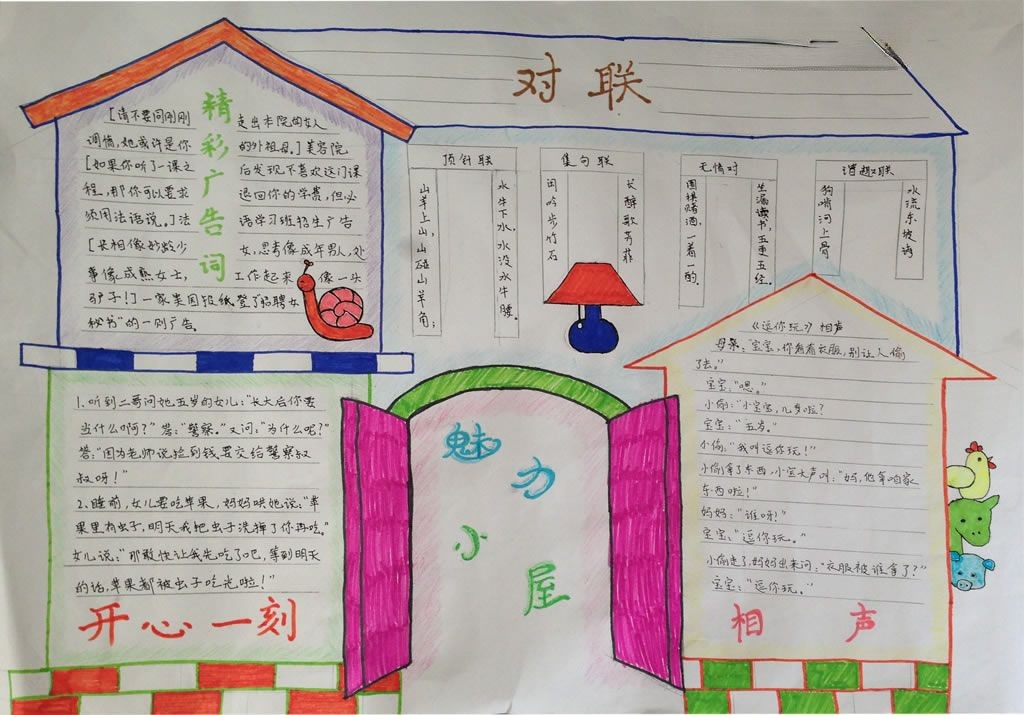 对联
精彩广告词
[请不要问刚刚走出本院的女人
调情,她或许是你的外祖母。]美容院
[如果你听了一课之后发现不喜欢这门课
程,那你可以要求退回你的学费,但必
须用法语说。]法语学习班招生广告
[长相像妙龄少女,思考像成年男人,处
事像成熟女士,工作起来像一头
驴子!]一家美国报纸登了招聘女
秘书"的一则广告。
顶针联
山羊上山,山碰山羊角;
水牛下水,水没水牛腰。
集句联
闲吟步竹石
长醉歌芳菲
无情对
围棋赌酒,一着一酌.
坐漏读书,五更五经.
谐趣联
狗啃河上骨
水流东坡诗
1.听到二哥问她五岁的女儿:"长大后你要
当什么啊?"答:"警察。"又问:"为什么呢?"
答:"因为老师说捡到钱要交给警察叔
叔呀!"
2.睡前,女儿要吃苹果,妈妈哄她说:"苹
果里有虫子,明天我把虫子洗掉了你再吃。"
女儿说:"那敢快让我先吃了吧,等到明天
的话,苹果都被虫子吃光啦!"
开心一刻
魅力小屋
《逗你玩》相声
母亲:"宝宝,你看着衣服,别让人偷
了去。"
宝宝:"嗯。"
小偷:"小宝宝,几岁啦?
宝宝:"五岁。"
小偷:"我叫逗你玩!"
小偷拿了东西,小宝大声叫:"妈,他拿咱家
东西啦!"
妈妈:"谁呀!"
宝宝:"逗你玩。"
小偷走了,妈妈出来问:"衣服被谁拿了?"
宝宝:"逗你玩."
相声